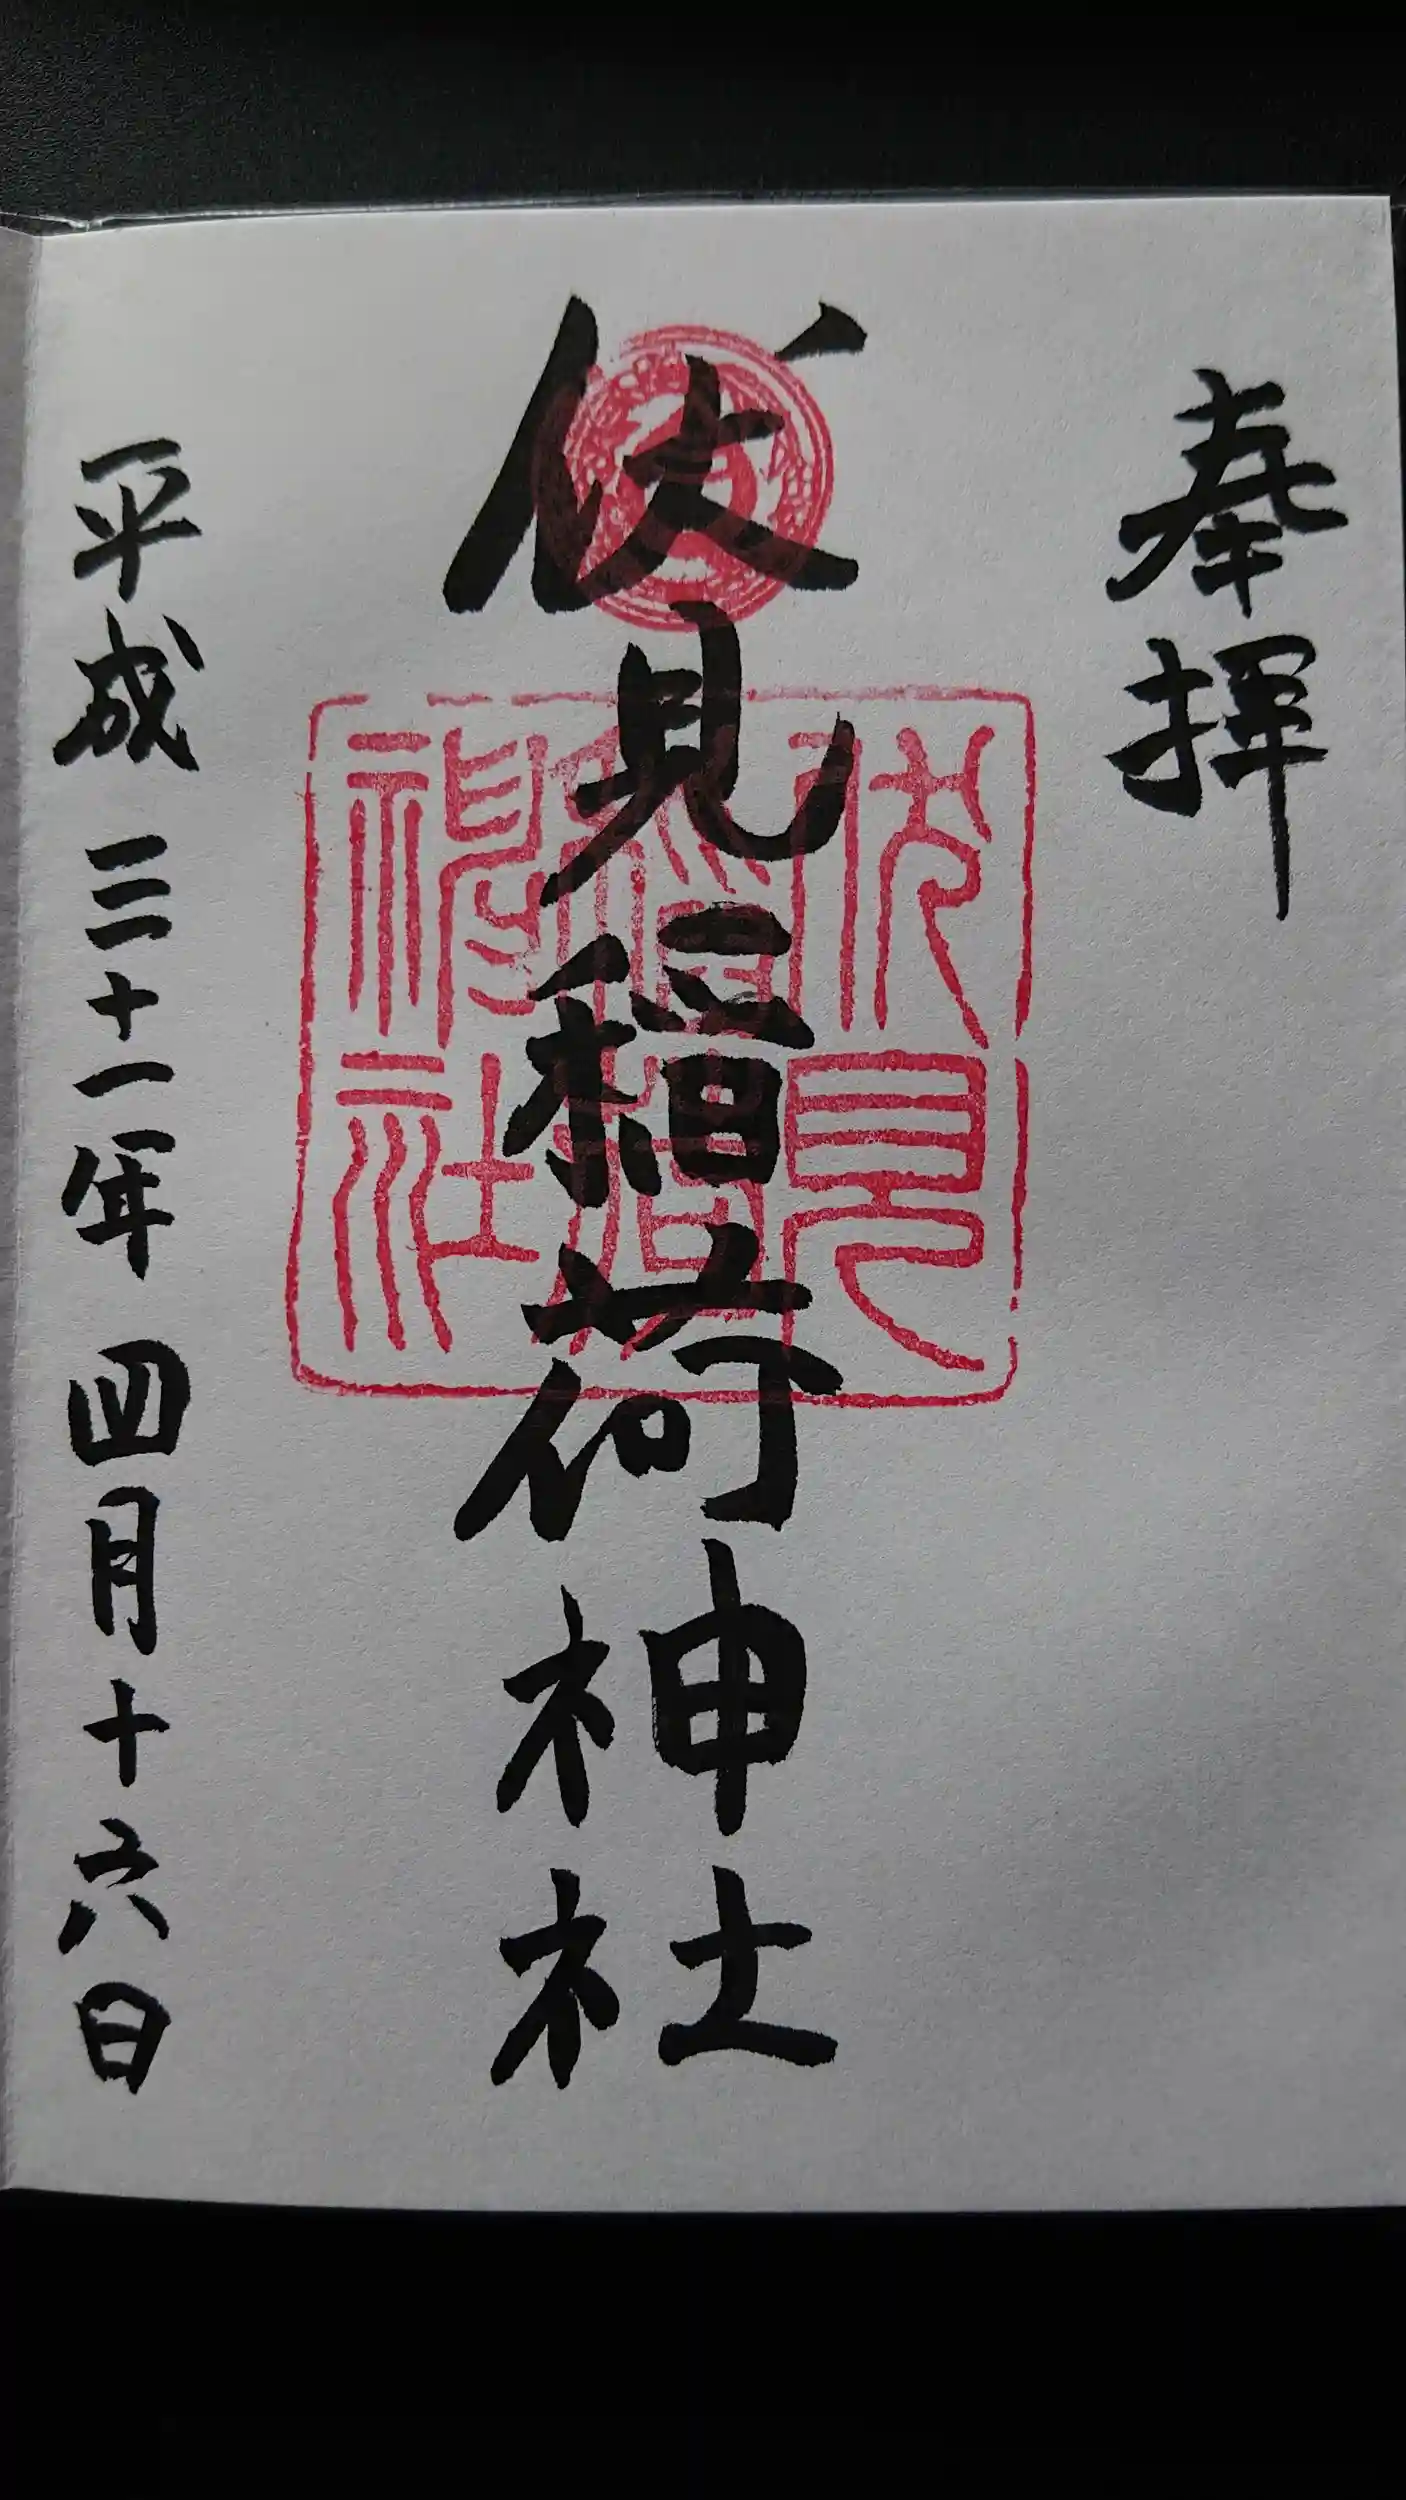 奉拝
伏見稲荷神社
伏見
稲荷
神社
平成三十一年四月十六日